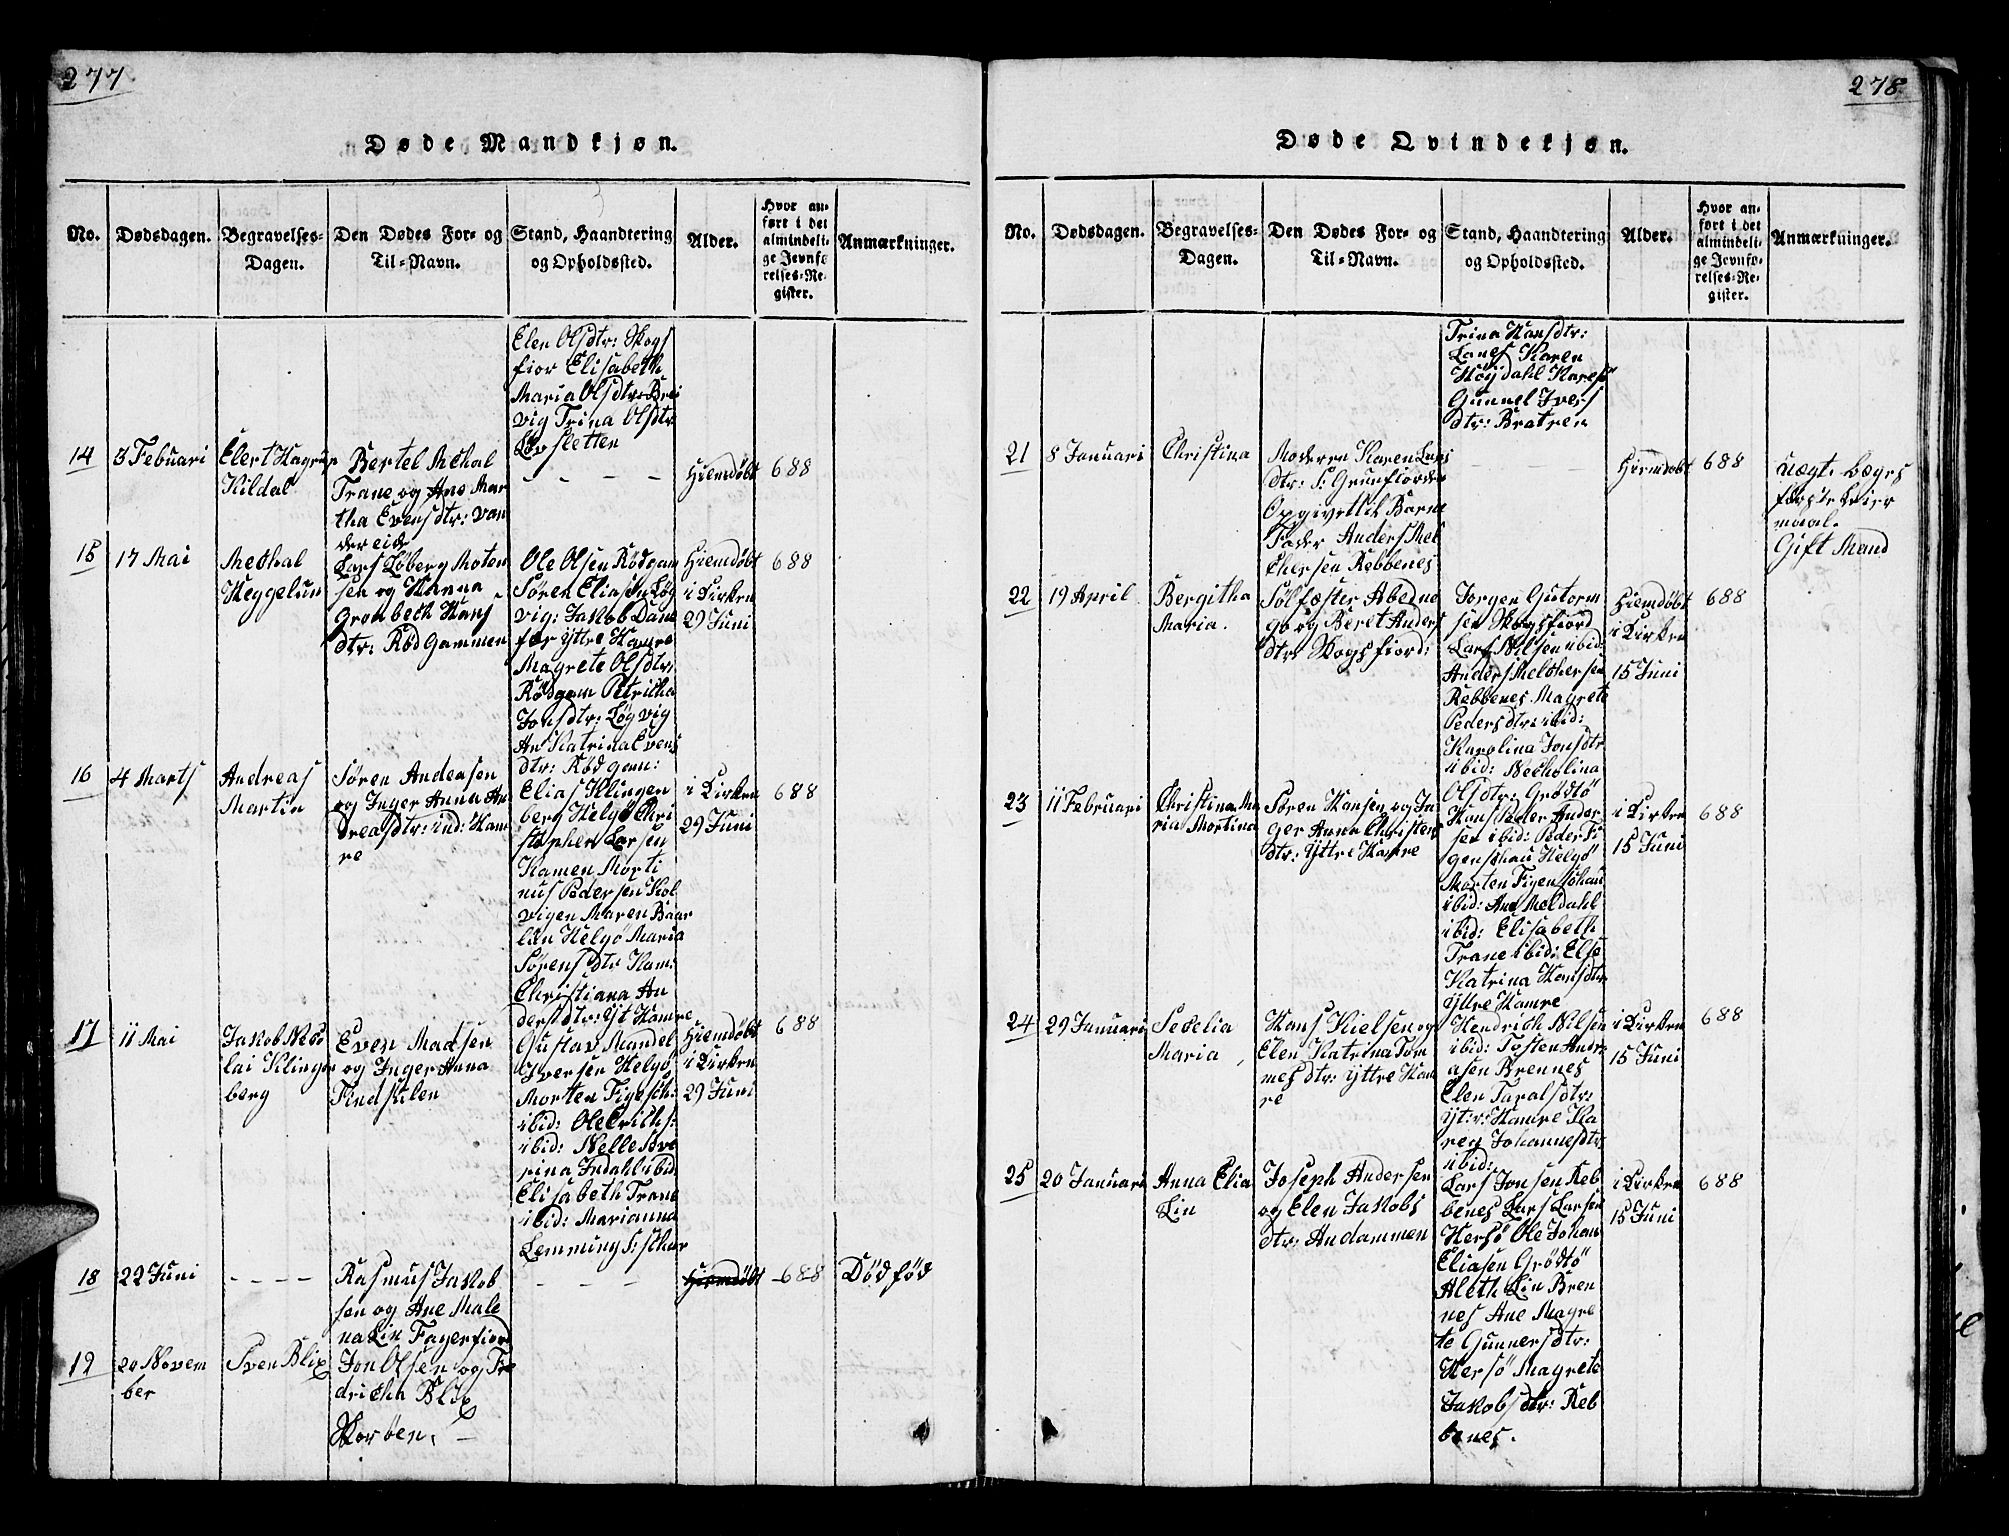 277
Døde Mandkjøn.
No.
Dødsdagen.
Begravelses-
Dagen.
Den Dødes For- og
Til-Navn.
Stand, Haandtering
og Opholdssted.
Alder.
Hvor an-
ført i det
almindeli-
ge Jevnfø-
relses-Re-
gister.
Anmærkninger.
Elen Olsdtr: Skogs
fior Elisabeth
Maria Olsdtr: Brei
vig Trina Olsdtr
Løvsletten
14
3 Februari
Elert Hagrup
Kildal
Bertel Mechal
Trane og Ane Mar
tha Evensdtr: Van
der eide
- - - -
Hiemdøbt
688
15
17 Mai
Mechal
Heggelun
Lars Løberg Moten
sen og Hanna
Grønbech Hans
dtr: Rød Gammen
Ole Olsen Rødgam
Søren Eliasen Løg
vig: Jakob Dane
fær Yttre Hamre
Magrete Olsdtr:
Rødgam Petricha
Jonsdtr: Løgvig
An Katrina Evens
dtr: Rødgam:
Hiemdøbt
i Dirken
29 Juni
688
16
4 Marts
Andreas
Martin
Søren Andeasen
og Inger Anna An
dreasdtr: ind: Ham
re
Elias Klingen
berg Helgø Chri
stopher Larsen
Hamen Morti
nus Pedersen Kol
vigen Maren Baar
lin Helgø Maria
Sørensdtr Ham:
Christiana An
dersdtr: Yt Hamre
i Dirken
29 Juni
688
17
11 Mai
Jakob Nico
lai Klingen
berg
Even Madsen
og Inger Anna
Findsulen
Gustav Mandel
Iversen Helgø
Morten Figesch:
ibid: Ole Erichs:
ibid: Nelle Seve
rina Indahl ibid
Elisabeth Trane
ibid: Marianna
Lemming S: sthar
Hiemdøbt
i Dirken
29 Juni
688
18
22 Juni
- - - -
Rasmus Jakob
sen og Ane Male
na Lin Fagerfiord
- - -
Hiemdøbt
688
Død fød
19
20 Novem
ber
Sven Blix
Jon Olsen og Fre
dricha Blix
Skorøen.
278
Døde Qvindekjøn.
No.
Dødsdagen.
Begravelses-
Dagen.
Den Dødes For- og
Til-Navn.
Stand, Haandtering
og Opholdssted.
Alder.
Hvor an-
ført i det
almindeli-
ge Jevnfø-
relses-Re-
gister.
Anmærkninger.
Trina Hansdtr:
Lanes Karen
Høydahl Karesø
Gunnel Ivers
dtr: Bratren
21
8 Januari
Christina
Moderen Karen Lars
dtr: S: Grunfiorden
Opgivet til Barne
Fader Anders Mel
chersen Rebbenes
Hiemdøbt
688
Uægt. Bæges
første leier
maal.
Gift Mand
22
19 April
Bergitha
Maria.
Sølfæster Abedne
go og Beret Anders
dtr: Skogsfiord:
Jørgen Gutorm
sen Skogsfiord
Lars Nilsen ibid:
Anders Melchersen
Rebbenes Magrete
Pedersdtr: ibid:
Karolina Jonsdtr
ibid: Necholina
Olsdtr: Grødtø
Hiemdøbt
i Dirken
15 Juni
688
23
11 Februari
Christina Ma
ria Mortina
Søren Hansen og In
ger Anna Christens
dtr: Yttre Hamre
Hans Peder Ander
sen ibid: Peder Fi
genschau Helgø
Morten Figenschau
ibid: Ane Meldahl
ibid: Elisabeth
Trane ibid: Else
Katrina Hansdtr
Yttre Hamre
i Dirken
15 Juni
688
24
29 Januari
Sedelia
Maria
Hans Nielsen og
Elen Katrina Tom
mesdtr: Yttre Ham
re
Hendrich Nilsen
ibid: Tosten Andr
easen Brennes
Elen Taralsdtr:
Yt:r: Hamre Ka
ren Johannesdtr
ibid:
i Dirken
15 Juni
688
25
20 Januari
Anna Elia
Lin
Joseph Andersen
og Elen Jakobs
dtr: Andammen
Lars Jonsen Reb
benes Lars Larsen
Hersø Ole Johan
Eliasen Grødtø
Aleth Lin Bren
nes Ane Magre
te Gunnersdtr:
Hersø Magrete
Jakobsdtr: Reb
benes.
i Dirken
15 Juni
688